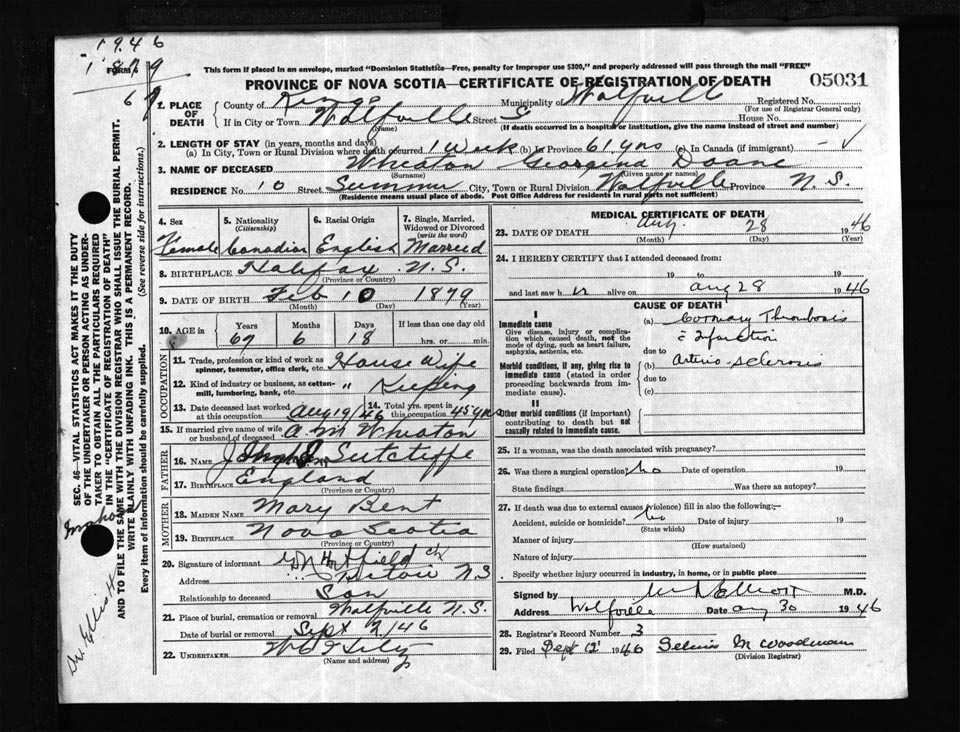 1946
1879
67
FORM 6
This form if placed in an envelope, marked "Dominion Statistics—Free, penalty for improper use $300," and properly addressed will pass through the mail "FREE"
PROVINCE OF NOVA SCOTIA—CERTIFICATE OF REGISTRATION OF DEATH 05031
1. PLACE OF DEATH County of Kings Municipality of Wolfville Registered No.
(For use of Registrar General only)
If in City or Town Wolfville Street House No.
(Name) (If death occurred in a hospital or institution, give the name instead of street and number)
2. LENGTH OF STAY (in years, months and days)
(a) In City, Town or Rural Division where death occurred 1 week (b) In Province 61 yrs (c) In Canada (if immigrant) — ✓
3. NAME OF DECEASED Wheaton Georgina Doane
(Surname) (Given name or names)
RESIDENCE No. 10 Street Summer City, Town or Rural Division Wolfville Province N.S.
(Residence means usual place of abode. Post Office Address for residents in rural parts not sufficient)
4. Sex Female
5. Nationality (Citizenship) Canadian
6. Racial Origin English
7. Single, Married, Widowed or Divorced (write the word) Married
8. BIRTHPLACE Halifax N.S.
(Province or Country)
9. DATE OF BIRTH Feb 10 1879
(Month) (Day) (Year)
10. AGE in Years 67 Months 6 Days 18 If less than one day old hrs. or min.
OCCUPATION
11. Trade, profession or kind of work as spinner, teamster, office clerk, etc. House Wife
12. Kind of industry or business, as cotton-mill, lumbering, bank, etc. " Keeping
13. Date deceased last worked at this occupation Aug 19/46 14. Total yrs. spent in this occupation 45 yrs
15. If married give name of wife or husband of deceased A. M Wheaton
FATHER
16. NAME Sutcliffe
17. BIRTHPLACE England
(Province or Country)
MOTHER
18. MAIDEN NAME Mary Bent
19. BIRTHPLACE Nova Scotia
(Province or Country)
20. Signature of informant Hatfield
Address N.S
Relationship to deceased Son
21. Place of burial, cremation or removal Wolfville N.S.
Date of burial or removal Sept 2/46
22. UNDERTAKER
(Name and address)
MEDICAL CERTIFICATE OF DEATH
23. DATE OF DEATH Aug. 28 1946
(Month) (Day) (Year)
24. I HEREBY CERTIFY that I attended deceased from:
19 to 19
and last saw h er alive on aug 28 1946
CAUSE OF DEATH
I
Immediate cause
Give disease, injury or complication which caused death, not the mode of dying, such as heart failure, asphyxia, asthenia, etc.
(a) Coronary Thrombosis
c̄ Infarction
due to
Morbid conditions, if any, giving rise to immediate cause (stated in order proceeding backwards from immediate cause).
(b) Arterio-sclerosis
due to
(c)
II
Other morbid conditions (if important) contributing to death but not causally related to immediate cause.
25. If a woman, was the death associated with pregnancy?
26. Was there a surgical operation? no Date of operation 19
State findings Was there an autopsy?
27. If death was due to external causes (violence) fill in also the following:—
Accident, suicide or homicide? no Date of injury 19
(State which)
Manner of injury
(How sustained)
Nature of injury
Specify whether injury occurred in industry, in home, or in public place
Signed by Elliott M.D.
Address Wolfville Date aug 30 1946
28. Registrar's Record Number 3
29. Filed Sept 12 1946 M Woodman
(Division Registrar)
SEC. 46—VITAL STATISTICS ACT MAKES IT THE DUTY OF THE UNDERTAKER OR PERSON ACTING AS UNDERTAKER TO OBTAIN ALL THE PARTICULARS REQUIRED IN THE "CERTIFICATE OF REGISTRATION OF DEATH" AND TO FILE THE SAME WITH THE DIVISION REGISTRAR WHO SHALL ISSUE THE BURIAL PERMIT.
WRITE PLAINLY WITH UNFADING INK. THIS IS A PERMANENT RECORD.
Every item of information should be carefully supplied. (See reverse side for instructions.)
Dr. Elliott